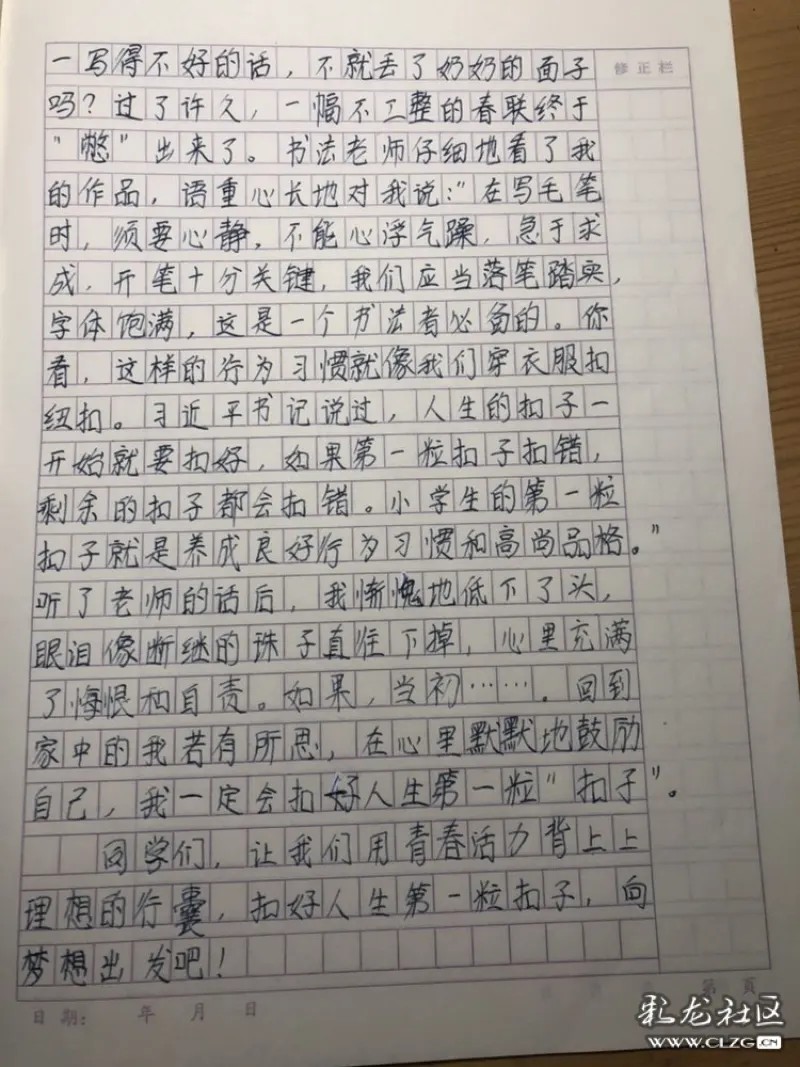 一写得不好的话，不就丢了奶奶的面子
修正栏
吗？过了许久，一幅不工整的春联终于
“憋”出来了。书法老师仔细地看了我
的作品，语重心长地对我说：“在写毛笔
时，须要心静，不能心浮气躁，急于求
成，开笔十分关键，我们应当落笔踏实，
字体饱满，这是一个书法者必备的。你
看，这样的行为习惯就像我们穿衣服扣
纽扣。习近平书记说过，人生的扣子一
开始就要扣好，如果第一粒扣子扣错，
剩余的扣子都会扣错。小学生的第一粒
扣子就是养成良好行为习惯和高尚品格。”
听了老师的话后，我惭愧地低下了头，
眼泪像断继的珠子直往下掉，心里充满
了悔恨和自责。如果，当初……．回到
家中的我若有所思，在心里默默地鼓励
自己，我一定会扣好人生第一粒“扣子”。
同学们，让我们用青春活力背上上
理想的行囊，扣好人生第一粒扣子，向
梦想出发吧！
日期： 年 月 日
第 页
彩龙社区
WWW.CLZG.CN